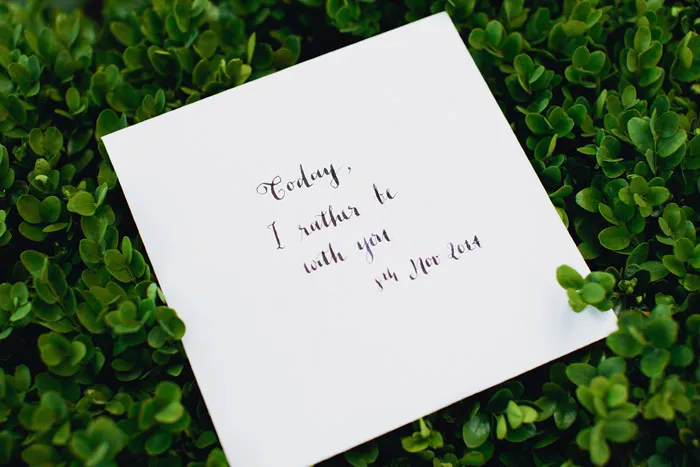 Today,
I rather be
with you
8th Nov 2014